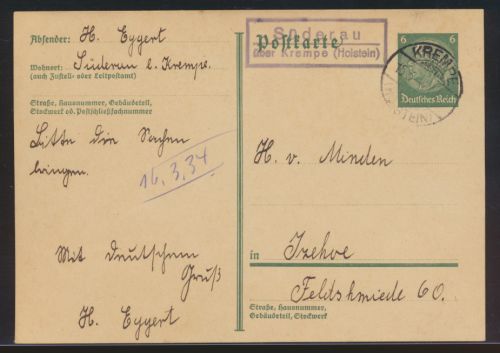 Absender: H. Eggert
Wohnort: Süderau b. Krempe.
(auch Zustell- oder Leitpostamt)
Straße, Hausnummer, Gebäudeteil,
Stockwerk od. Postschließfachnummer
Bitte die Sachen
bringen.
16.3.34
Mit deutschem
Gruß
H. Eggert
Süderau
über Krempe (Holstein)
Postkarte
6 6
Deutsches Reich
KREMPE
H. v. Minden
in Itzehoe
Feldschmiede 60.
Straße, Hausnummer,
Gebäudeteil, Stockwerk